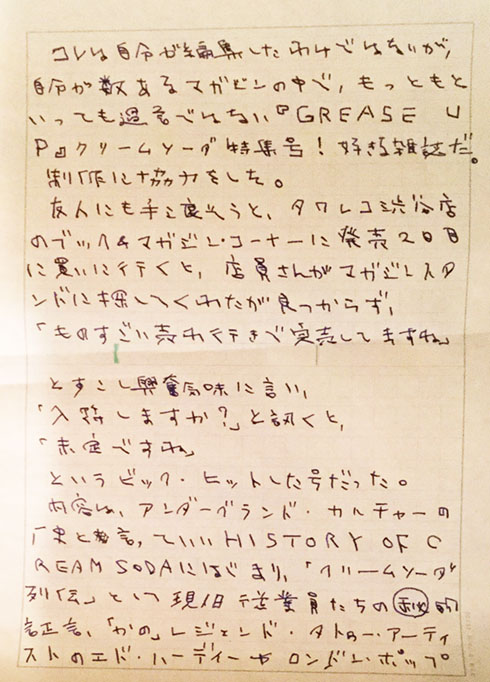 コレは自分が編集したわけではないが、
自分が数あるマガジンの中で、もっともと
いっても過言ではない『GREASE U
P』クリームソーダ特集号！好きな雑誌だ。
制作に協力をした。
友人にも手に渡そうと、タワレコ渋谷店
のブック&マガジン・コーナーに発売2日目
に買いに行くと、店員さんがマガジンスタ
ンドに探してくれたが見つからず、
「ものすごい売れ行きで完売してますね」
とすこし興奮気味に言い、
「入荷しますか？」と訊くと、
「未定ですね」
というビック・ヒットした号だった。
内容は、アンダーグランド・カルチャーの
「史と言っていいHISTORY OF C
REAM SODAにはじまり、「クリームソーダ
列伝」という現旧従業員たちの私的
証言、「かの」レジェンド・タトゥー・アーティ
ストのエド・ハーディーやロンドン・ポップ